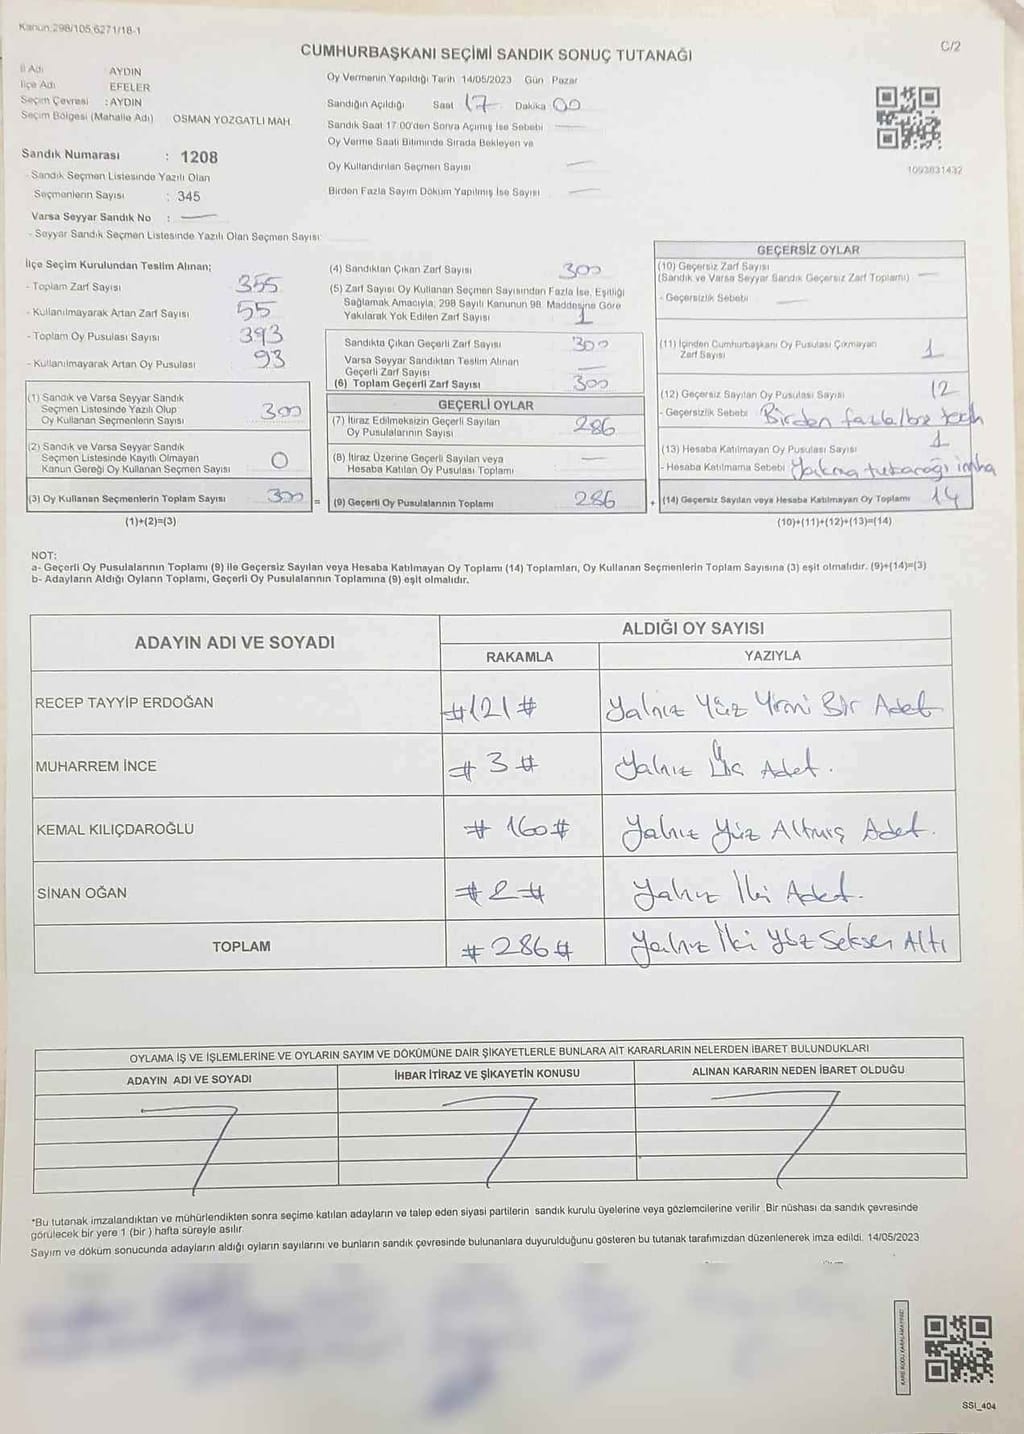 Kanun:298/105,6271/18-1
C/2
CUMHURBAŞKANI SEÇİMİ SANDIK SONUÇ TUTANAĞI
İl Adı AYDIN
İlçe Adı EFELER
Seçim Çevresi : AYDIN
Seçim Bölgesi (Mahalle Adı) OSMAN YOZGATLI MAH.
Sandık Numarası : 1208
- Sandık Seçmen Listesinde Yazılı Olan
Seçmenlerin Sayısı : 345
Varsa Seyyar Sandık No :
- Seyyar Sandık Seçmen Listesinde Yazılı Olan Seçmen Sayısı:
Oy Vermenin Yapıldığı Tarih 14/05/2023 Gün Pazar
Sandığın Açıldığı Saat 17 Dakika 00
Sandık Saat 17:00'den Sonra Açılmış İse Sebebi
Oy Verme Saati Bitiminde Sırada Bekleyen ve
Oy Kullandırılan Seçmen Sayısı
Birden Fazla Sayım Döküm Yapılmış İse Sayısı
1093831432
İlçe Seçim Kurulundan Teslim Alınan;
- Toplam Zarf Sayısı 355
- Kullanılmayarak Artan Zarf Sayısı 55
- Toplam Oy Pusulası Sayısı 393
- Kullanılmayarak Artan Oy Pusulası 93
(1) Sandık ve Varsa Seyyar Sandık
Seçmen Listesinde Yazılı Olup
Oy Kullanan Seçmenlerin Sayısı 300
(2) Sandık ve Varsa Seyyar Sandık
Seçmen Listesinde Kayıtlı Olmayan
Kanun Gereği Oy Kullanan Seçmen Sayısı 0
(3) Oy Kullanan Seçmenlerin Toplam Sayısı 300 =
(1)+(2)=(3)
(4) Sandıktan Çıkan Zarf Sayısı 300
(5) Zarf Sayısı Oy Kullanan Seçmen Sayısından Fazla İse, Eşitliği
Sağlamak Amacıyla, 298 Sayılı Kanunun 98. Maddesine Göre
Yakılarak Yok Edilen Zarf Sayısı 1
Sandıkta Çıkan Geçerli Zarf Sayısı 300
Varsa Seyyar Sandıktan Teslim Alınan
Geçerli Zarf Sayısı
(6) Toplam Geçerli Zarf Sayısı 300
GEÇERLİ OYLAR
(7) İtiraz Edilmeksizin Geçerli Sayılan
Oy Pusulalarının Sayısı 286
(8) İtiraz Üzerine Geçerli Sayılan veya
Hesaba Katılan Oy Pusulası Toplamı
(9) Geçerli Oy Pusulalarının Toplamı 286 +
GEÇERSİZ OYLAR
(10) Geçersiz Zarf Sayısı
(Sandık ve Varsa Seyyar Sandık Geçersiz Zarf Toplamı)
- Geçersizlik Sebebi
(11) İçinden Cumhurbaşkanı Oy Pusulası Çıkmayan
Zarf Sayısı 1
(12) Geçersiz Sayılan Oy Pusulası Sayısı 12
- Geçersizlik Sebebi Birden fazla
(13) Hesaba Katılmayan Oy Pusulası Sayısı 1
- Hesaba Katılmama Sebebi Yakma tutanağı imha
(14) Geçersiz Sayılan veya Hesaba Katılmayan Oy Toplamı 14
(10)+(11)+(12)+(13)=(14)
NOT:
a- Geçerli Oy Pusulalarının Toplamı (9) ile Geçersiz Sayılan veya Hesaba Katılmayan Oy Toplamı (14) Toplamları, Oy Kullanan Seçmenlerin Toplam Sayısına (3) eşit olmalıdır. (9)+(14)=(3)
b- Adayların Aldığı Oyların Toplamı, Geçerli Oy Pusulalarının Toplamına (9) eşit olmalıdır.
ADAYIN ADI VE SOYADI
ALDIĞI OY SAYISI
RAKAMLA YAZIYLA
RECEP TAYYİP ERDOĞAN #121# Yalnız Yüz Yirmi Bir Adet
MUHARREM İNCE #3# Yalnız Üç Adet.
KEMAL KILIÇDAROĞLU #160# Yalnız Yüz Altmış Adet.
SİNAN OĞAN #2# Yalnız İki Adet.
TOPLAM #286# Yalnız İki Yüz Seksen Altı
OYLAMA İŞ VE İŞLEMLERİNE VE OYLARIN SAYIM VE DÖKÜMÜNE DAİR ŞİKAYETLERLE BUNLARA AİT KARARLARIN NELERDEN İBARET BULUNDUKLARI
ADAYIN ADI VE SOYADI İHBAR İTİRAZ VE ŞİKAYETİN KONUSU ALINAN KARARIN NEDEN İBARET OLDUĞU
*Bu tutanak imzalandıktan ve mühürlendikten sonra seçime katılan adayların ve talep eden siyasi partilerin sandık kurulu üyelerine veya gözlemcilerine verilir. Bir nüshası da sandık çevresinde
görülecek bir yere 1 (bir) hafta süreyle asılır.
Sayım ve döküm sonucunda adayların aldığı oyların sayılarını ve bunların sandık çevresinde bulunanlara duyurulduğunu gösteren bu tutanak tarafımızdan düzenlenerek imza edildi. 14/05/2023
KARE KODU KARALAMAYINIZ!
SSI_404